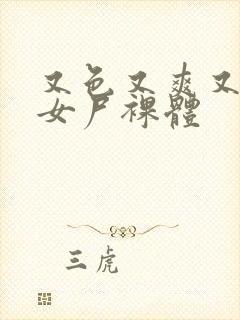 又色又爽又
女尸裸體
三虎